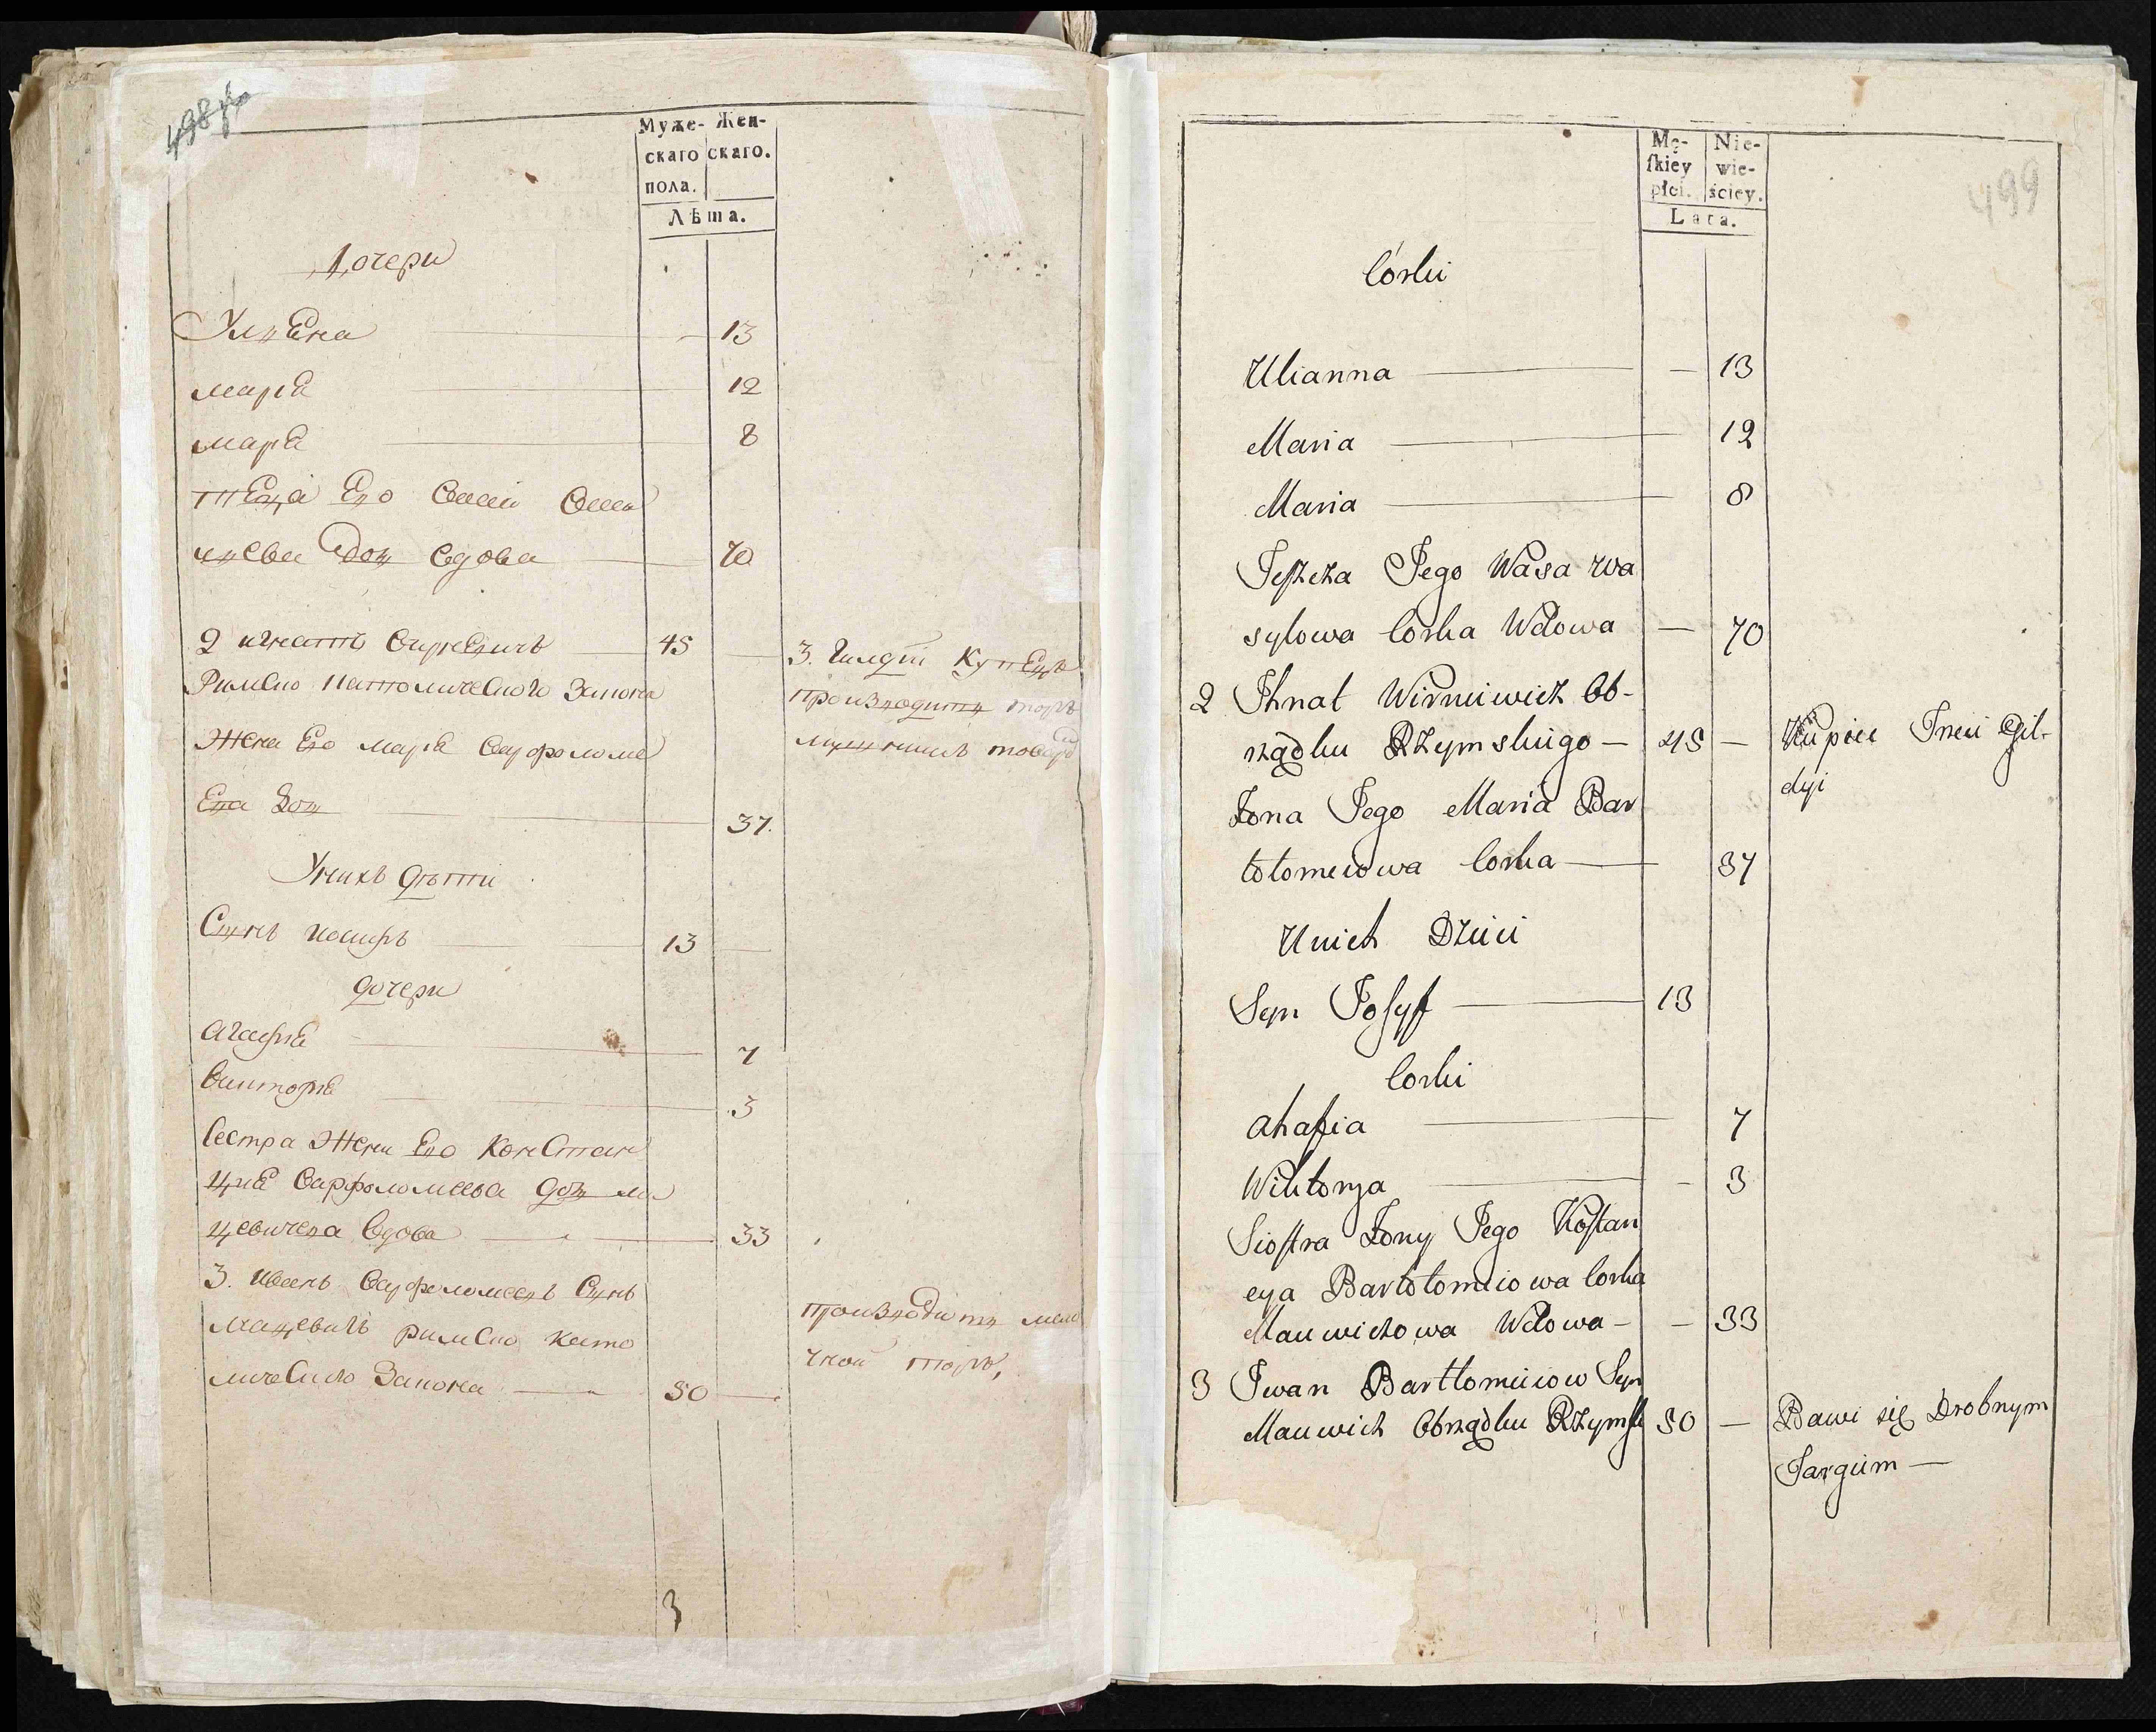 498
Муже- Жен-
скаго скаго.
пола.
Лѣта.
Дочери
13
марiа 12
мара 8
тпеща Его
дочь вдова 70
2 игнатъ 45 3. Гилдiи Купецъ
Римско Католического Закона производитъ торгъ
Жена Его марiа Варфоломе
Ева Доч 37.
Унихъ дѣти
Сынъ иосифъ 13
дочери
агафiа 7
викторiа 3
Сестра Жены Его Констан
цыа Варфоломеева дочь ма
цевичева вдова 33
3. Иванъ Варфоломеевъ Сынъ производитъ мело
мацевичъ римско като чной торгъ,
лического Закона 50
3
Mę- Nie-
ſkiey wie-
płci. ściey.
Lata.
499
Córki
Ulianna — 13
Maria 12
Maria 8
Teſzcza Jego Wasa wa
sylowa Corka Wdowa — 70
2 Ihnat Ob-
rządku Rzymskiego — 45 — Kupiec Trzeci Gil-
dyi
Żona Jego Maria Bar
tołomeiowa Corka 37
Unich Dzieci
Syn Joſyf 13
Corki
Ahafia 7
Wiktorya - 3
Sioſtra Żony Jego Koſtan
cya Bartołomeiowa Corka
Macewiczowa Wdowa — - 33
3 Iwan Bartłomeiow Syn
Macewicz Obrządku Rzymſk 50 — Bawi się Drobnym
Targiem —